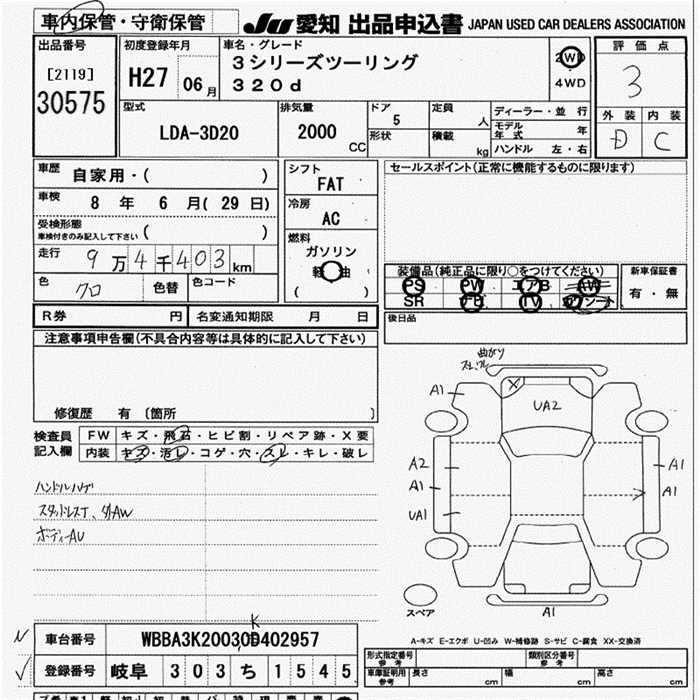 車内保管・守衛保管
JU 愛知 出品申込書 JAPAN USED CAR DEALERS ASSOCIATION
出品番号
[2119]
30575
初度登録年月
H27 06月
車名・グレード
3シリーズツーリング
320d
2WD
4WD
評価点
3
外装 内装
D C
型式
LDA-3D20
排気量
2000
CC
ドア
5
形状
定員
人
積載
kg
ディーラー・並行
モデル年式 年
ハンドル 左・右
車歴
自家用・( )
車検
8 年 6 月( 29 日)
受検形態
車検付きのみ記入して下さい ( )
走行
9万4千403km
色
クロ
色替
色コード
シフト
FAT
冷房
AC
燃料
ガソリン
軽油
( )
セールスポイント(正常に機能するものに限ります)
装備品(純正品に限り○をつけてください)
PS PW エアB AW
SR ナビ TV カワシート
新車保証書
有・無
R券 円
名変通知期限 月 日
後日品
注意事項申告欄(不具合内容等は具体的に記入して下さい)
修復歴 有 〔箇所 〕
検査員
記入欄
FW キズ・飛石・ヒビ割・リペア跡・X要
内装 キズ・汚レ・コゲ・穴・スレ・キレ・破レ
ハンドルハゲ
スタッドレスT、外AW
ボディーAU
曲がり
A1
X
UA2
A2
A1
UA1
A1
A1
A1
スペア
A-キズ E-エクボ U-凹み W-補修跡 S-サビ C-腐食 XX-交換済
車台番号
K
WBBA3K20030D402957
登録番号
岐阜 303 ち 1545
形式指定番号
参考
類別区分番号
参考
車庫証明用
参考
長さ cm 幅 cm 高さ cm